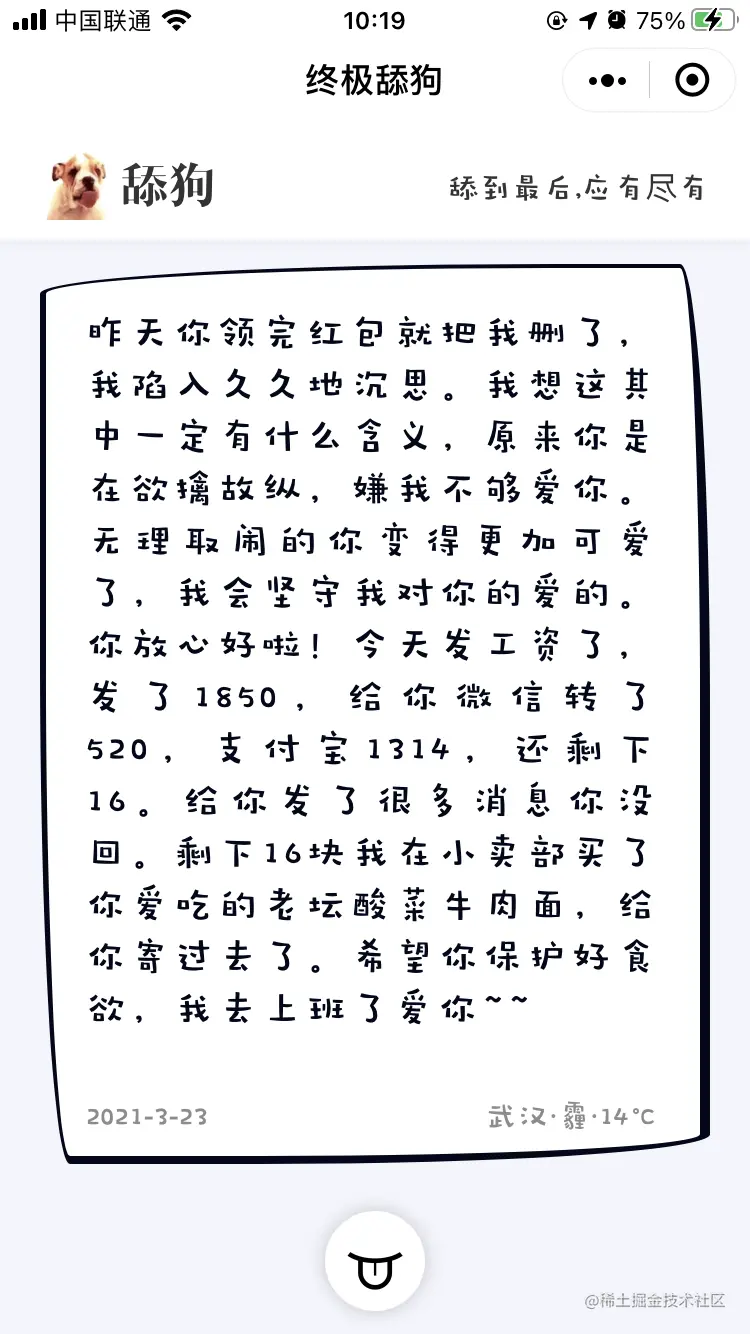 中国联通 10:19 75%
终极舔狗
舔狗 舔到最后,应有尽有
昨天你领完红包就把我删了，
我陷入久久地沉思。我想这其
中一定有什么含义，原来你是
在欲擒故纵，嫌我不够爱你。
无理取闹的你变得更加可爱
了，我会坚守我对你的爱的。
你放心好啦！今天发工资了，
发了1850，给你微信转了
520，支付宝1314，还剩下
16。给你发了很多消息你没
回。剩下16块我在小卖部买了
你爱吃的老坛酸菜牛肉面，给
你寄过去了。希望你保护好食
欲，我去上班了爱你~~
2021-3-23 武汉·霾·14℃
@稀土掘金技术社区